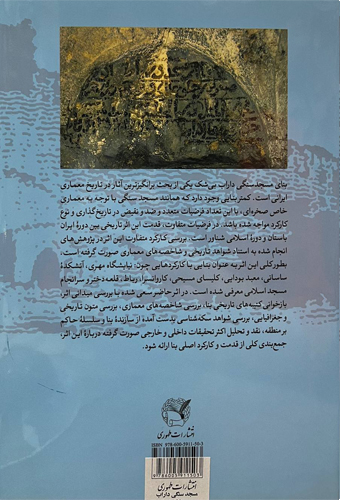 بنای مسجدسنگی داراب بی‌شک یکی از بحث برانگیزترین آثار در تاریخ معماری
ایرانی است. کمتر بنایی وجود دارد که همانند مسجد سنگی با توجه به معماری
خاص صخره‌ای، با این تعداد فرضیات متعدد و ضد و نقیض در تاریخ‌گذاری و نوع
کارکرد مواجه شده باشد. در فرضیات متفاوت، قدمت این اثر تاریخی بین دورهٔ ایران
باستان و دورهٔ اسلامی شناور است. بررسی کارکرد متفاوت این اثر در پژوهش‌های
انجام شده به استناد شواهد تاریخی و شاخصه‌های معماری صورت گرفته است.
بطورکلی این اثر به عنوان بنایی با کارکردهایی چون: نیایشگاه مهری، آتشکدهٔ
ساسانی، معبد بودایی، کلیسای مسیحی، کاروانسرا، رباط، قلعه دختر و سرانجام
مسجد اسلامی معرفی شده است. در اثر حاضر سعی شده با بررسی میدانی اثر،
بازخوانی کتیبه‌های تاریخی بنا، بررسی شاخصه‌های معماری، بررسی متون تاریخی
و جغرافیایی، بررسی شواهد سکه‌شناسی بدست آمده از سازندهٔ بنا و سلسلهٔ حاکم
بر منطقه، نقد و تحلیل اکثر تحقیقات داخلی و خارجی صورت گرفته دربارهٔ این اثر،
جمع‌بندی کلی از قدمت و کارکرد اصلی بنا ارائه شود.
انتشارات طهوری
ISBN 978-600-5911-50-3
9786005911503
انتشارات طهوری
مسجد سنگی داراب